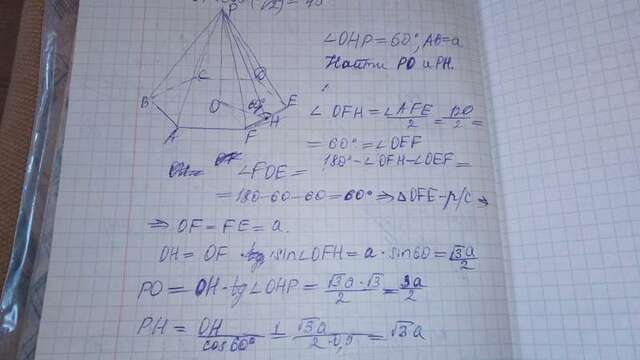 P
∠OHP = 60°, AB = a
Найти PO и PH.
C
B
O
60°
E
H
A
F
∠OFH = ∠AFE/2 = 120/2 =
= 60° = ∠OEF
∠FOE = 180° - ∠OFH - ∠OEF =
= 180 - 60 - 60 = 60° ⇒ △OFE - р/с ⇒
⇒ OF = FE = a.
OH = OF · sin∠OFH = a · sin60 = √3a/2
PO = OH · tg∠OHP = √3a·√3/2 = 3a/2
PH = OH/cos60° = √3a/2·0,5 = √3a